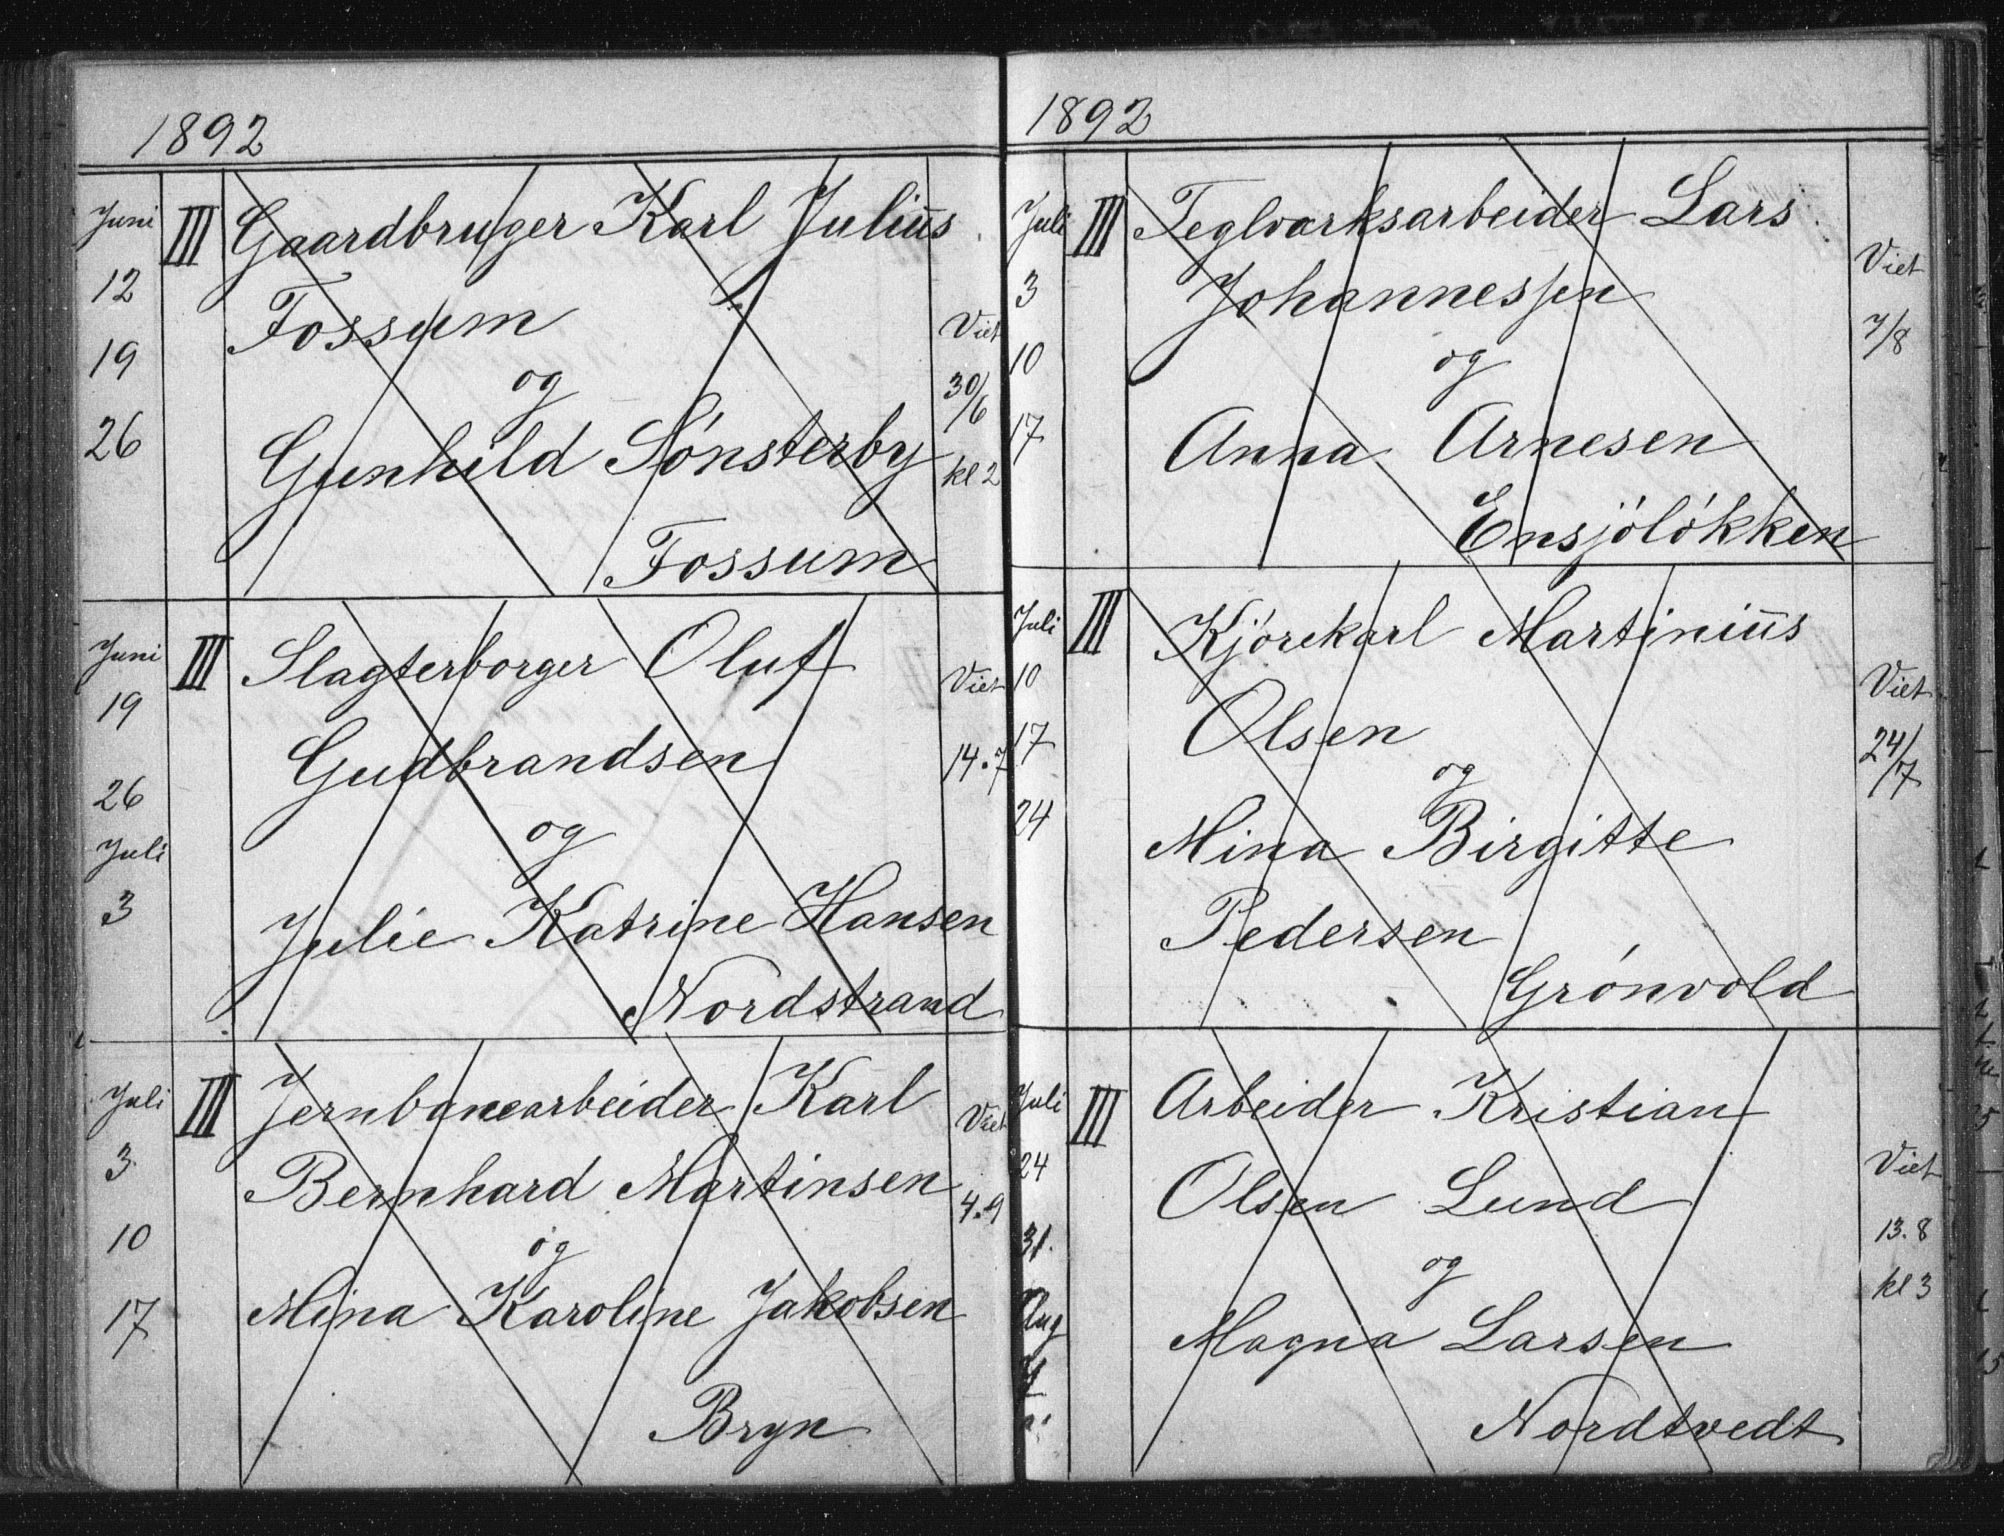 1892
Juni
12
19
26
III
Gaardbruger Karl Julius
Fossum
og
Gunhild Sönsterby
Fossum
Viet
30/6
kl 2
Juni
19
26
Juli
3
III
Slagterborger Oluf
Gudbrandsen
og
Julie Katrine Hansen
Nordstrand
Viet
14.7
Juli
3
10
17
III
Jernbanearbeider Karl
Bernhard Martinsen
og
Mina Karoline Jakobsen
Bryn
Viet
4.9
1892
Juli
3
10
17
III
Teglværksarbeider Lars
Johannessen
og
Anna Arnesen
Ensjölökken
Viet
7/8
Juli
10
17
24
III
Kjörekarl Martinius
Olsen
og
Mina Birgitte
Pedersen
Grönvold
Viet
24/7
Juli
24
31.
Aug
III
Arbeider Kristian
Olsen Lund
og
Magna Larsen
Nordtvedt
Viet
13.8
kl 3